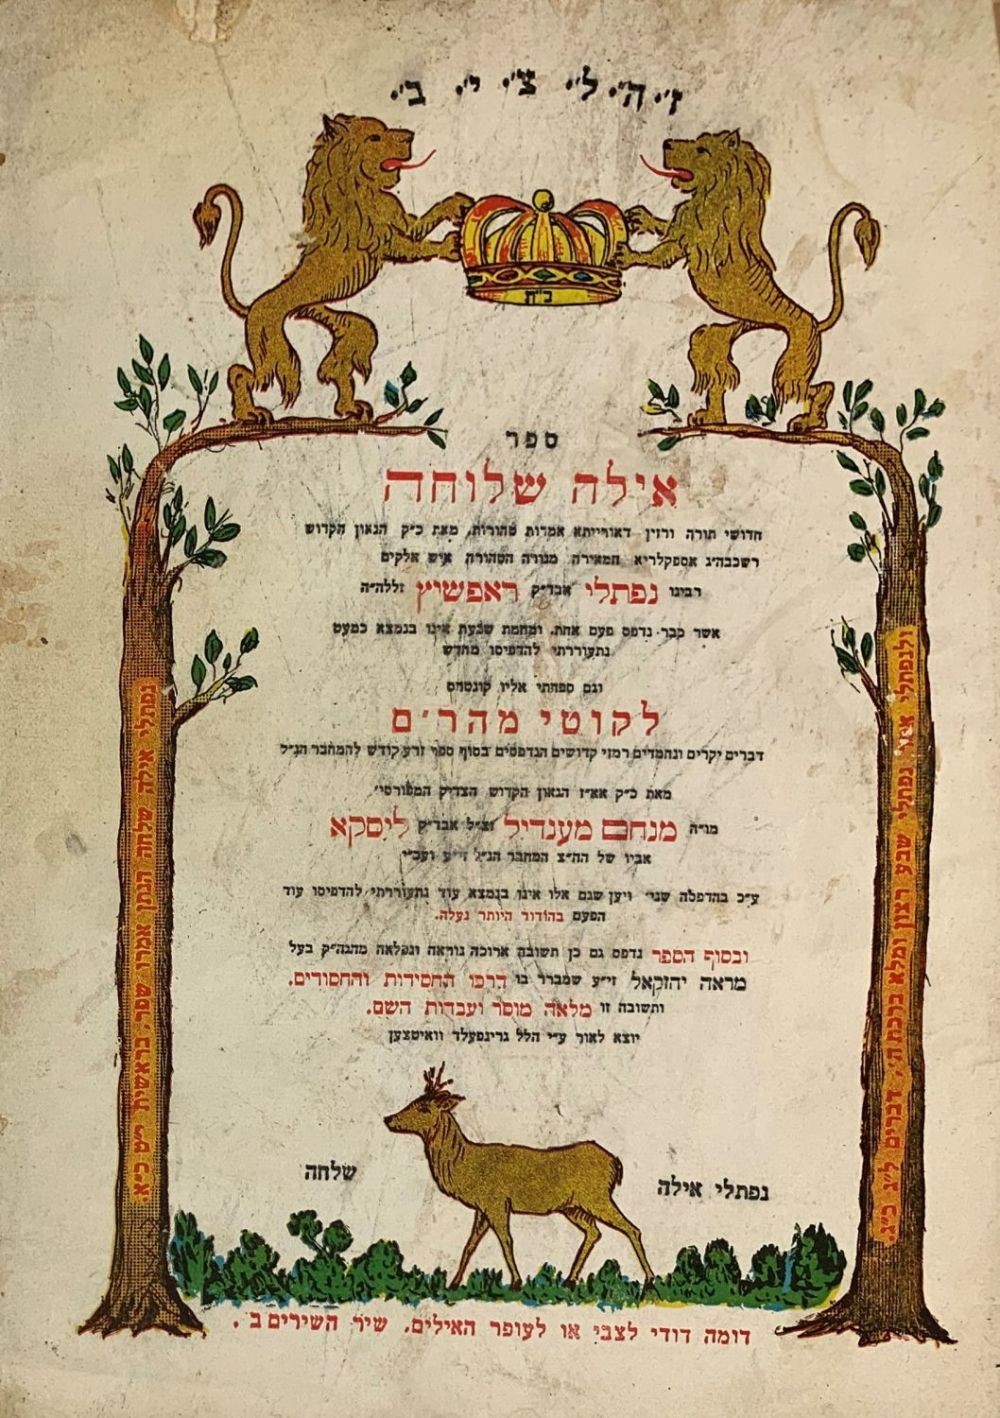 ז'. ה'. ל'. צ'. י'. ב'.
כ"ת
ספר
אילה שלוחה
חדושי תורה ורזין דאורייתא אמרות טהורות, מאת כ"ק הגאון הקדוש
רשכבה"ג אספקלריא המאירה מנורה הטהורה, איש אלקים
רבינו נפתלי אבד"ק ראפשיץ זללה"ה
אשר כבר נדפס פעם אחת, ומחמת שכעת אינו בנמצא כמעט
נתעוררתי להדפיסו מחדש
וגם ספחתי אליו קונטרס
לקוטי מהר"ם
דברים יקרים ונחמדים רמזי קדושים הנדפסים בסוף ספר זרע קודש להמחבר הנ"ל
מאת כ"ק אא"ז הגאון הקדוש הצדיק המפורסי'
מו"ה מנחם מענדיל זצ"ל אבד"ק ליסקא
אביו של הה"צ המחבר הנ"ל זי"ע ועכ"י
ע"כ בהדפסה שני' ויען שגם אלו אינו בנמצא עוד נתעוררתי להדפיסו עוד
הפעם בהודור היותר נעלה.
ובסוף הספר נדפס גם כן תשובה ארוכה נוראה ונפלאה מהגה"ק בעל
מראה יחזקאל זי"ע שמברר בו דרכי החסידות והחסודים.
ותשובה זו מלאה מוסר ועבדות השם.
יוצא לאור ע"י הלל גרינפעלד וואיטצען
נפתלי אילה שלחה
דומה דודי לצבי או לעופר האילים. שיר השירים ב'.
נפתלי אילה שלחה הנתן אמרי שפר, בראשית מ"ט כ"א.
ולנפתלי אמר נפתלי שבע רצון ומלא ברכת ה', דברים ל"ג כ"ג.